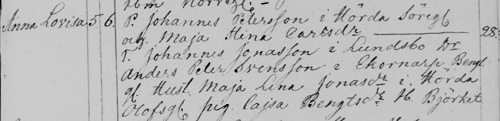 Anna Lovisa 5. 6. P. Johannes Petersson i Hörda Söregl 28
och Maja Stina Carlsdr
T. Johannes Jonasson i Lundsbo Dr
Anders Peter Svensson i Ekornarp Bengt
gl Hust. Maja Lina Jonasdr i Hörda
Olofsgl pig. Cajsa Bengtsdr H. Björket